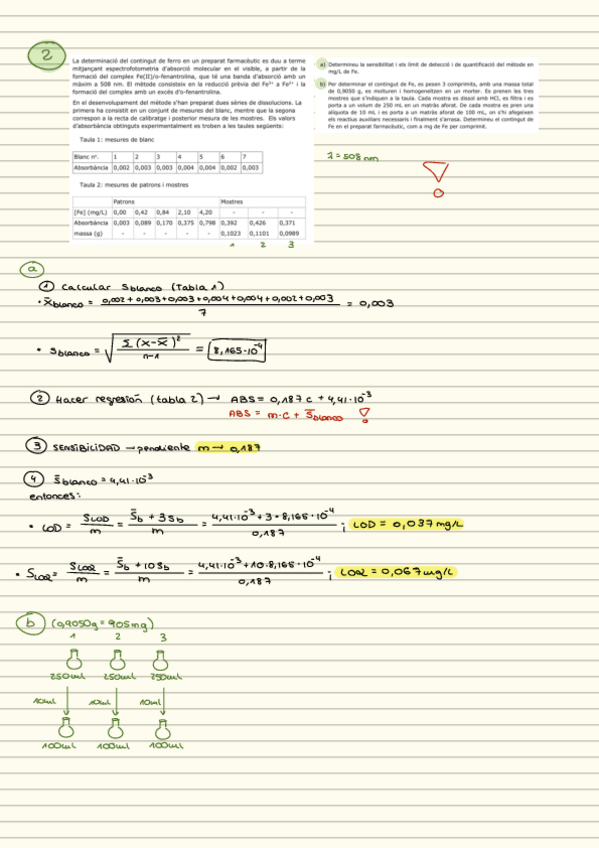 2
La determinació del contingut de ferro en un preparat farmacèutic es duu a terme
mitjançant espectrofotometria d'absorció molecular en el visible, a partir de la
formació del complex Fe(II)/o-fenantrolina, que té una banda d'absorció amb un
màxim a 508 nm. El mètode consisteix en la reducció prèvia del Fe³⁺ a Fe²⁺ i la
formació del complex amb un excés d'o-fenantrolina.
En el desenvolupament del mètode s'han preparat dues sèries de dissolucions. La
primera ha consistit en un conjunt de mesures del blanc, mentre que la segona
correspon a la recta de calibratge i posterior mesura de les mostres. Els valors
d'absorbància obtinguts experimentalment es troben a les taules següents:
Taula 1: mesures de blanc
Blanc nº. 1 2 3 4 5 6 7
Absorbància 0,002 0,003 0,003 0,004 0,004 0,002 0,003
Taula 2: mesures de patrons i mostres
Patrons Mostres
[Fe] (mg/L) 0,00 0,42 0,84 2,10 4,20 - - -
Absorbància 0,003 0,089 0,170 0,375 0,798 0,392 0,426 0,371
massa (g) - - - - - 0,1023 0,1101 0,0989
1 2 3
a) Determineu la sensibilitat i els límit de detecció i de quantificació del mètode en
mg/L de Fe.
b) Per determinar el contingut de Fe, es pesen 3 comprimits, amb una massa total
de 0,9050 g, es molturen i homogeneïtzen en un morter. Es prenen les tres
mostres que s'indiquen a la taula. Cada mostra es dissol amb HCl, es filtra i es
porta a un volum de 250 mL en un matràs aforat. De cada mostra es pren una
alíquota de 10 mL i es porta a un matràs aforat de 100 mL, on s'hi afegeixen
els reactius auxiliars necessaris i finalment s'arrasa. Determineu el contingut de
Fe en el preparat farmacèutic, com a mg de Fe per comprimit.
λ = 508 nm
a
① Calcular Sblanco (Tabla 1)
• x̄blanco = 0,002 + 0,003 + 0,003 + 0,004 + 0,004 + 0,002 + 0,003 / 7 = 0,003
• Sblanco = √ Σ (x - x̄)² / n-1 = 8,165·10⁻⁴
② Hacer regresión (tabla 2) → ABS = 0,187 c + 4,41·10⁻³
ABS = m·c + S̄blanco !
③ SENSIBILIDAD → pendiente m → 0,187
④ S̄blanco = 4,41·10⁻³
entonces:
• LOD = SLOD / m = S̄b + 3Sb / m = 4,41·10⁻³ + 3·8,165·10⁻⁴ / 0,187 ; LOD = 0,037 mg/L
• SLOQ = SLOQ / m = S̄b + 10Sb / m = 4,41·10⁻³ + 10·8,165·10⁻⁴ / 0,187 ; LOQ = 0,067 mg/L
b (0,9050g = 905mg)
1 2 3
250ml 250ml 250ml
10ml 10ml 10ml
100ml 100ml 100ml